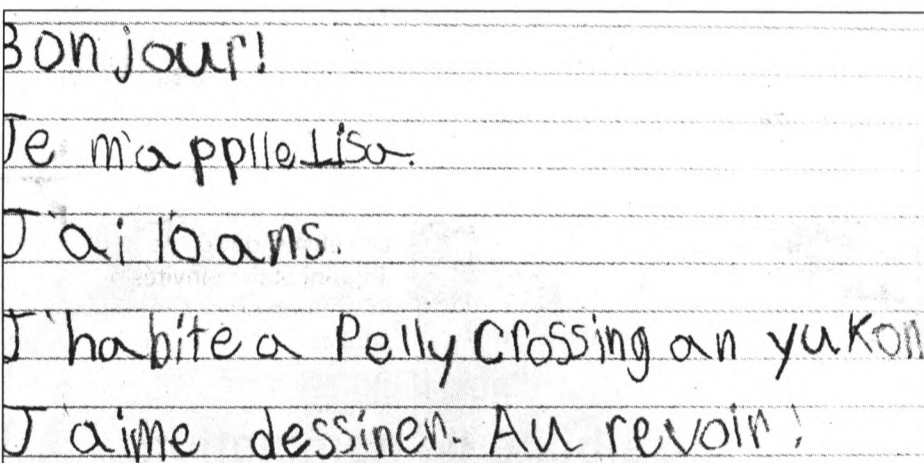 Bonjour!
Je m'applle Lisa.
J'ai 10 ans.
J'habite a Pelly Crossing an yukon
J'aime dessiner. Au revoir!